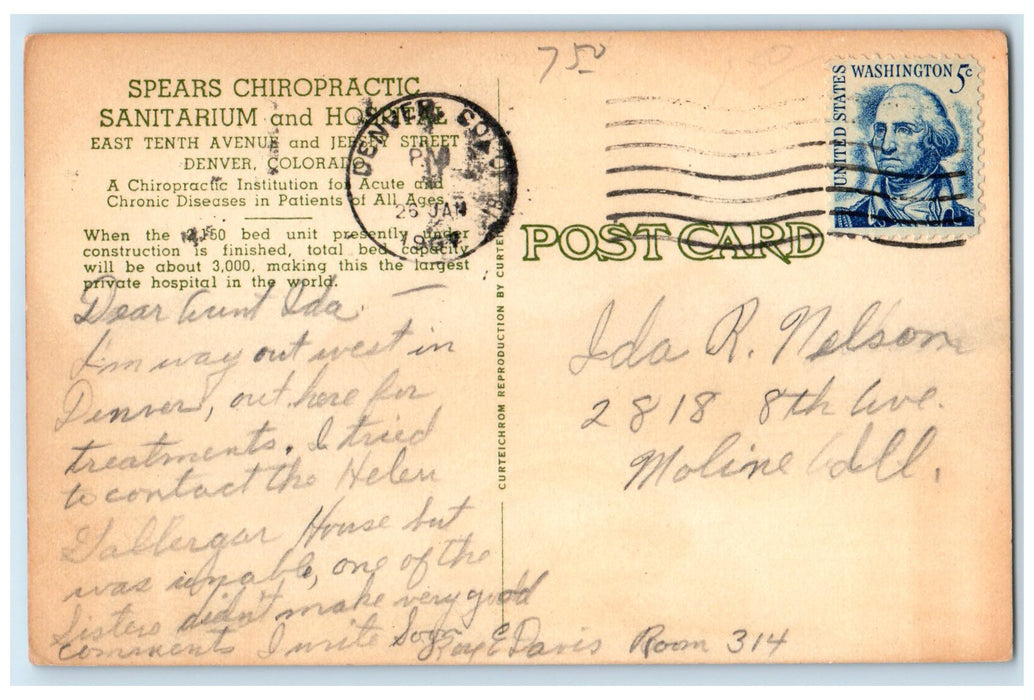 7 50
SPEARS CHIROPRACTIC
SANITARIUM and HOSPITAL
EAST TENTH AVENUE and JERSEY STREET
DENVER, COLORADO
A Chiropractic Institution for Acute and
Chronic Diseases in Patients of All Ages
When the bed unit presently under
construction is finished, total bed capacity
will be about 3,000, making this the largest
private hospital in the world.
DENVER COLO.
PM
26 JAN
UNITED STATES
WASHINGTON 5c
POST CARD
CURTEICHROM REPRODUCTION BY CURTE
Dear Aunt Ida —
I'm way out west in
Denver, out here for
treatments. I tried
to contact the Helen
House but
was unable, one of the
Sisters didn't make very good
comments I write Soon Roy E Davis Room 314
Ida R. Nelson
2818 8th Ave.
Moline Ill.